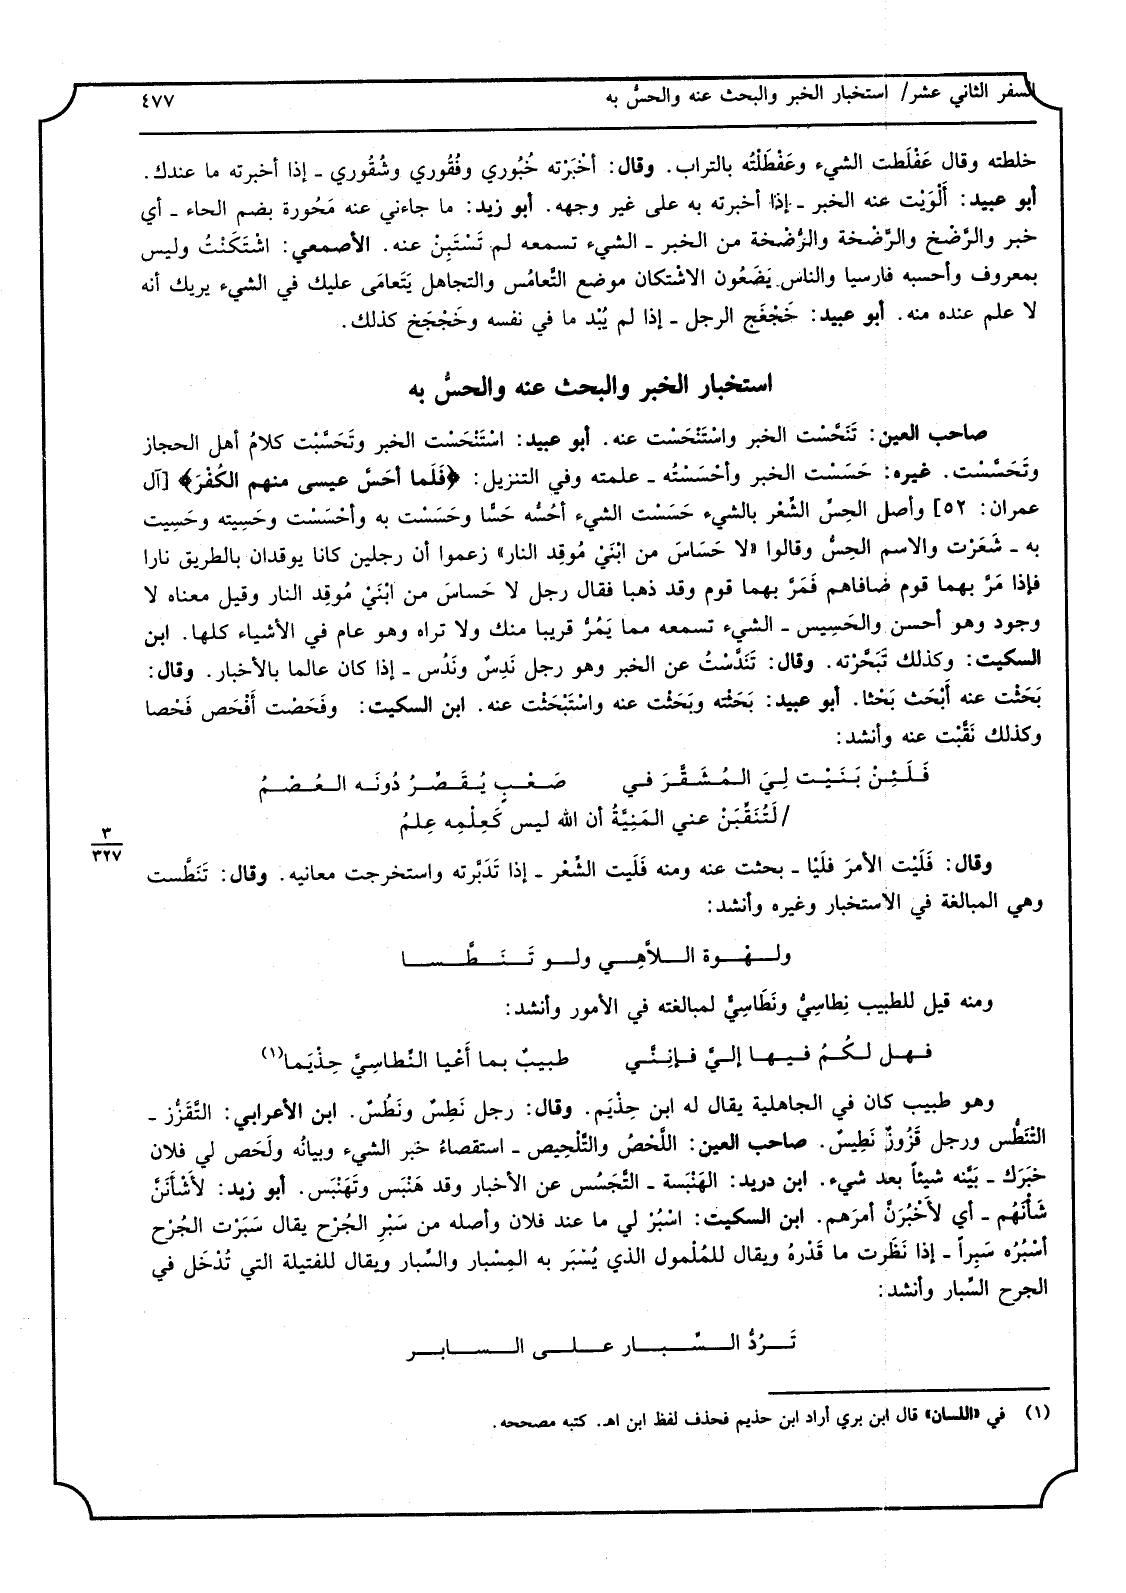 السفر الثاني عشر/ استخبار الخبر والبحث عنه والحسُّ به ٤٧٧
خلطته وقال عَفْلَطت الشيء وعَفْطَلْتُه بالتراب. وقال: أخْبَرْته خُبُوري وفُقُوري وشُقُوري ـ إذا أخبرته ما عندك.
أبو عبيد: أَلْوَيْت عنه الخبر ـ إذا أخبرته به على غير وجهه. أبو زيد: ما جاءني عنه مَحُورة بضم الحاء ـ أي
خبر والرَّضْخ والرَّضْخة والرُّضْخة من الخبر ـ الشيء تسمعه لم تَسْتَبِنْ عنه. الأصمعي: اشْتَكَنْتُ وليس
بمعروف وأحسبه فارسيا والناس يَضَعُون الاشْتكان موضع التَّعامُس والتجاهل يَتَعامَى عليك في الشيء يريك أنه
لا علم عنده منه. أبو عبيد: خَجْغَج الرجل ـ إذا لم يُبْد ما في نفسه وخَجْجَخ كذلك.
استخبار الخبر والبحث عنه والحسُّ به
صاحب العين: تَنَحَّسْت الخبر واسْتَنْحَسْت عنه. أبو عبيد: اسْتَنْحَسْت الخبر وتَحَسَّبْت كلامُ أهل الحجاز
وتَحَسَّسْت. غيره: حَسَسْت الخبر وأحْسَسْتُه ـ علمته وفي التنزيل: ﴿فَلَما أحَسَّ عيسى منهم الكُفْرَ﴾ [آل
عمران: ٥٢] وأصل الحِسِّ الشَّعْر بالشيء حَسَسْت الشيء أحُسُّه حَسًّا وحَسَسْت به وأحْسَسْت وحَسِيته وحَسِيت
به ـ شَعَرْت والاسم الحِسُّ وقالوا «لا حَسَاسَ من ابْنَيْ مُوقِد النار» زعموا أن رجلين كانا يوقدان بالطريق نارا
فإذا مَرَّ بهما قوم ضافاهم فَمَرَّ بهما قوم وقد ذهبا فقال رجل لا حَساسَ من ابْنَيْ مُوقِد النار وقيل معناه لا
وجود وهو أحسن والحَسِيس ـ الشيء تسمعه مما يَمُرُّ قريبا منك ولا تراه وهو عام في الأشياء كلها. ابن
السكيت: وكذلك تَبَحَّرْته. وقال: تَنَدَّسْتُ عن الخبر وهو رجل نَدِسٌ ونَدُس ـ إذا كان عالما بالأخبار. وقال:
بَحَثْت عنه أَبْحَث بَحْثا. أبو عبيد: بَحَثْته وبَحَثْت عنه واسْتَبْحَثْت عنه. ابن السكيت: وفَحَصْت أفْحَص فَحْصا
وكذلك نَقَّبْت عنه وأنشد:
فَلَئِنْ بَنَيْت لِيَ المُشَقَّرَ في صَعْبٍ يُقَصِّرُ دُونَه العُصْمُ
/لَتُنَقِّبَنْ عني المَنِيَّةُ أن الله ليس كَعِلْمِه عِلمُ
٣
٣٢٧
وقال: فَلَيْت الأمرَ فَلْيًا ـ بحثت عنه ومنه فَلَيت الشِّعْر ـ إذا تَدَبَّرته واستخرجت معانيه. وقال: تَنَطَّست
وهي المبالغة في الاستخبار وغيره وأنشد:
ولهْوة اللأَهِي ولو تَنَطَّسا
ومنه قيل للطبيب نِطاسِيُّ ونَطَاسِيٌّ لمبالغته في الأمور وأنشد:
فهل لكُمُ فيها إليَّ فإنِنَّي طبيبٌ بما أَعْيا النِّطاسِيَّ حِذْيَما(١)
وهو طبيب كان في الجاهلية يقال له ابن حِذْيَم. وقال: رجل نَطِسٌ ونَطُسٌ. ابن الأعرابي: التَّقَزُّز ـ
التَّنَطُّس ورجل قَزُوزٌ نَطِيسٌ. صاحب العين: اللَّحْصُ والتَّلْحِيص ـ استقصاءُ خبر الشيء وبيانُه ولَحَص لي فلان
خبَرَك ـ بَيَّنه شيئاً بعد شيء. ابن دريد: الهَنْبَسة ـ التَّجَسُس عن الأخبار وقد هَنْبَس وتَهَنْبَس. أبو زيد: لأشْأَنَنَّ
شَأْنَهُم ـ أي لأَخْبُرَنَّ أمرَهم. ابن السكيت: اسْبُرْ لي ما عند فلان وأصله من سَبْرِ الجُرْح يقال سَبَرْت الجُرْح
أسْبُرُه سَبراً ـ إذا نَظَرت ما قَدْرهُ ويقال للمُلْمول الذي يُسْبَر به المِسْبار والسِّبار ويقال للفتيلة التي تُدْخَل في
الجرح السِّبار وأنشد:
تَرُدُّ السِّبار على السابر
(١) في «اللسان» قال ابن بري أراد ابن حذيم فحذف لفظ ابن اهـ. كتبه مصححه.